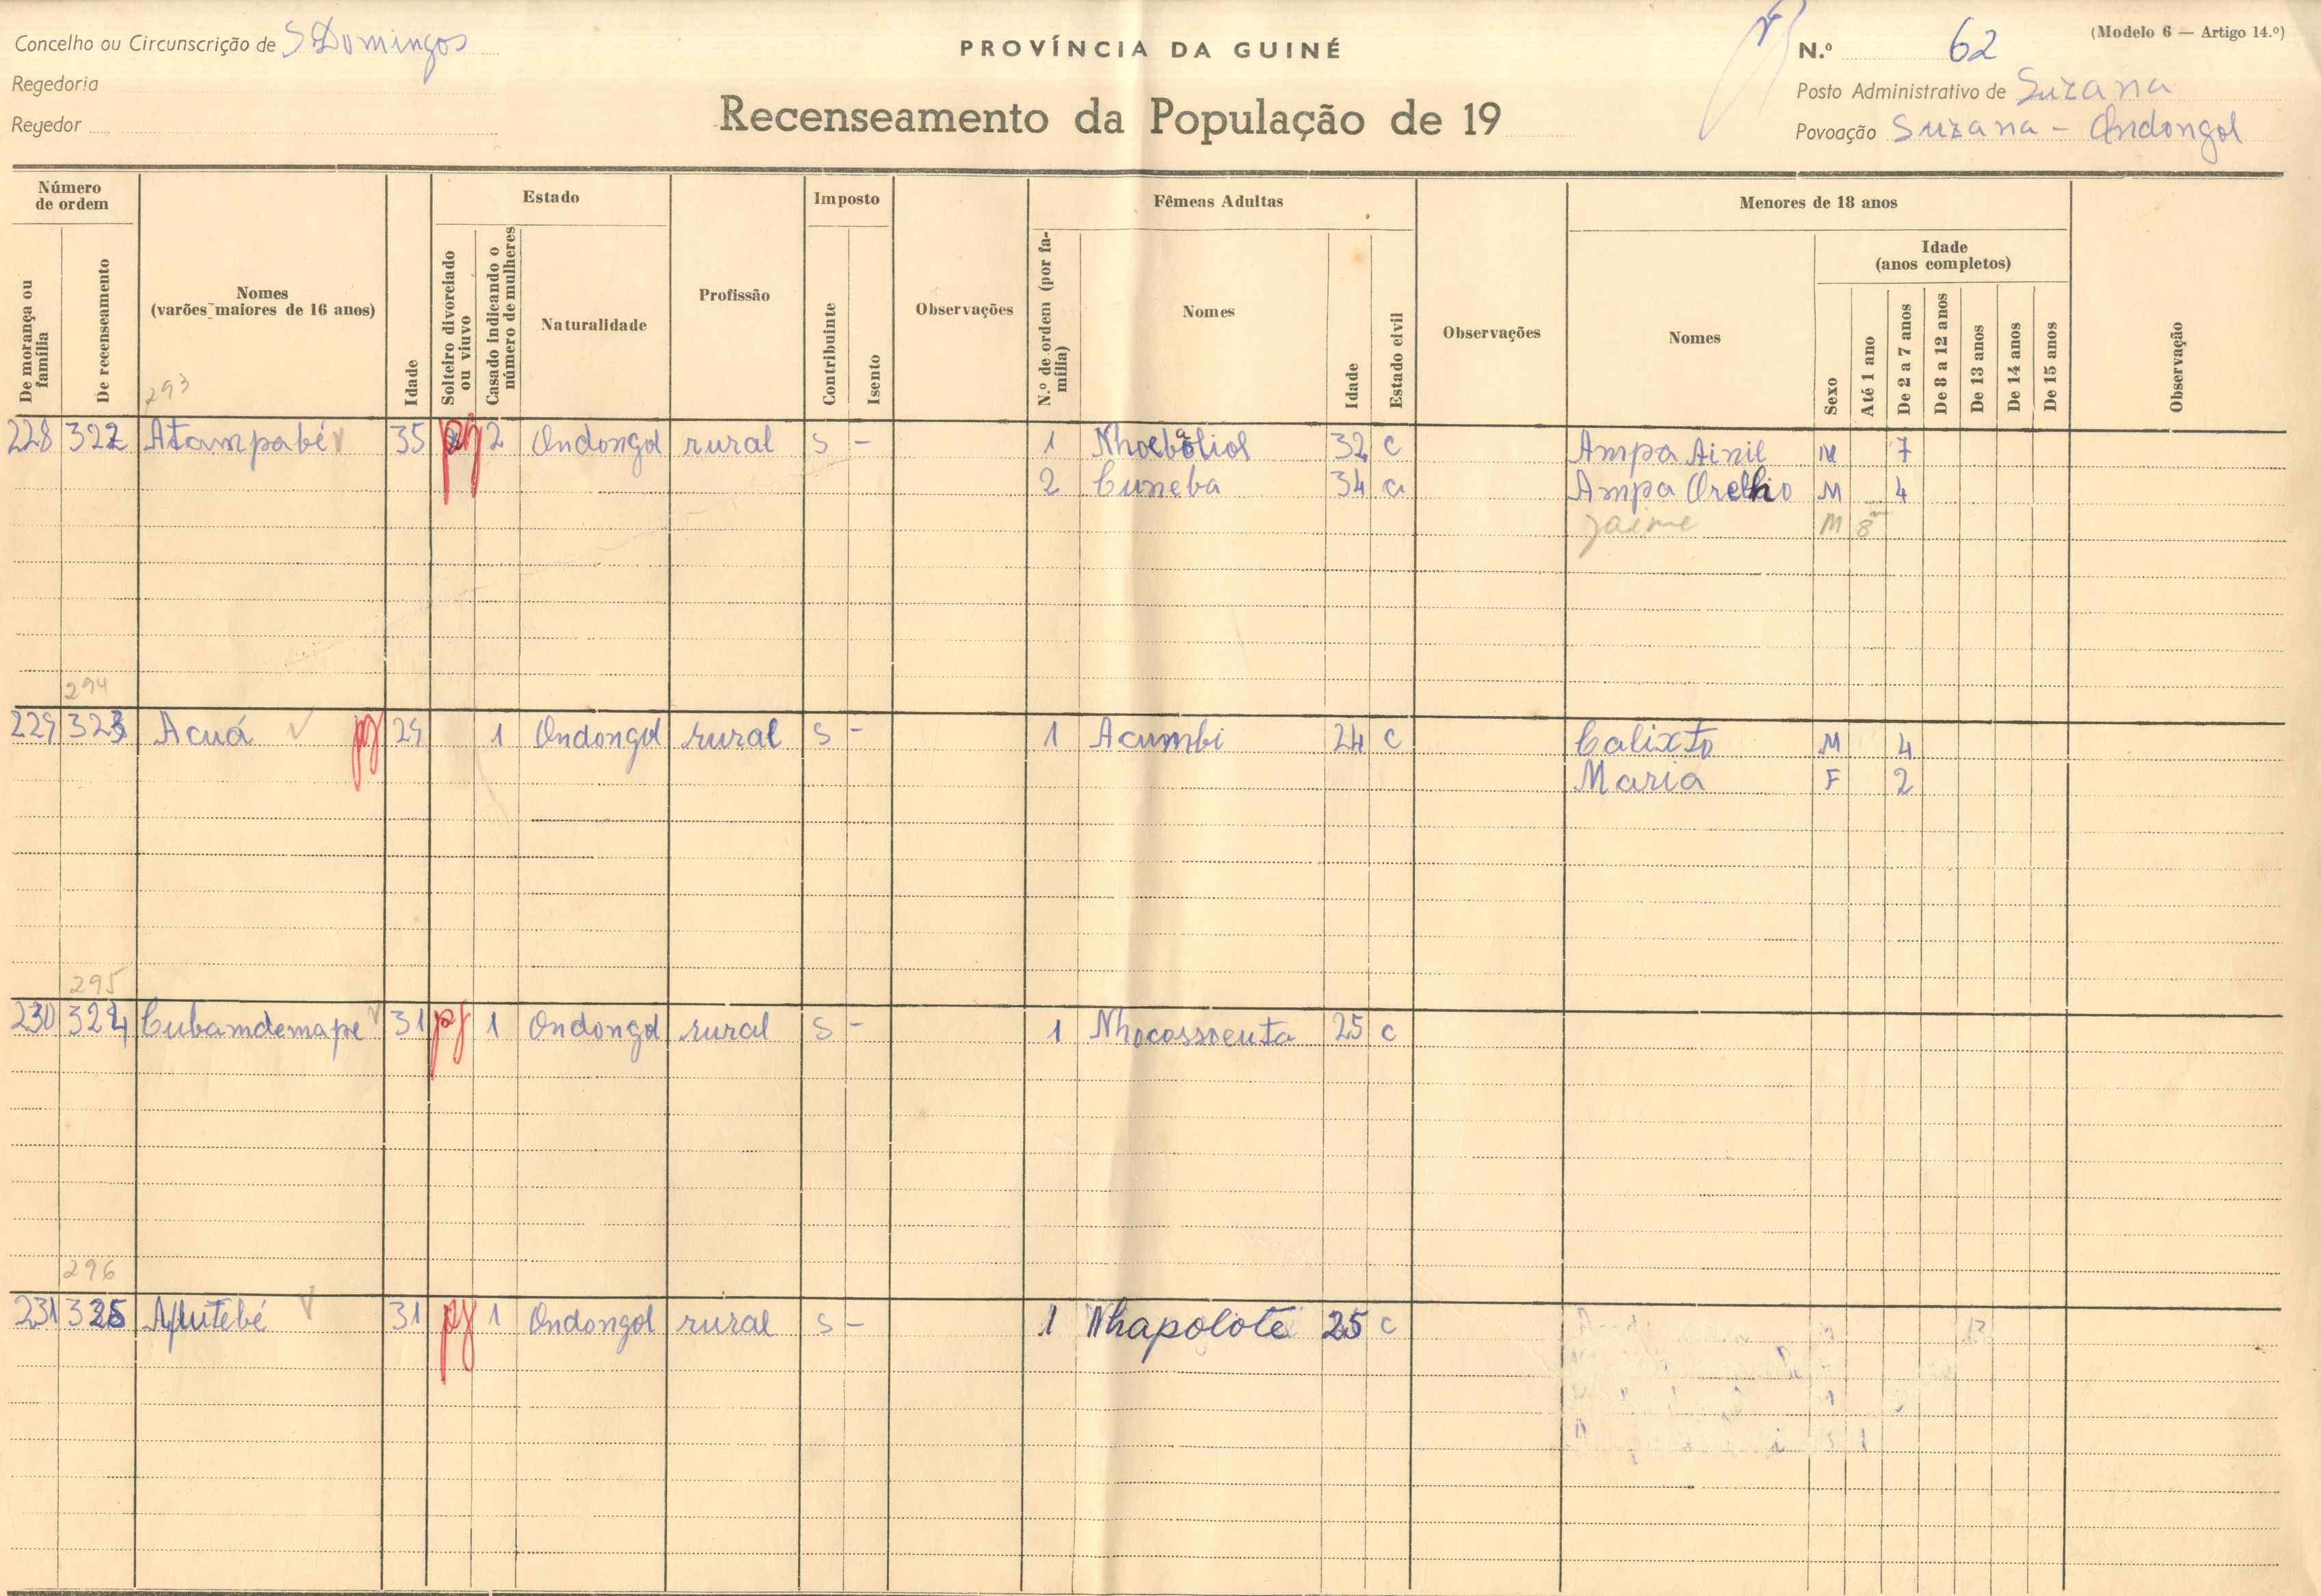 Concelho ou Circunscrição de S Domingos
Regedoria
Regedor
PROVÍNCIA DA GUINÉ
Recenseamento da População de 19
(Modelo 6 — Artigo 14.º)
N.º 62
Posto Administrativo de Suzana
Povoação Suzana - Ondongol
Número de ordem
De morança ou família
De recenseamento
Nomes
(varões maiores de 16 anos)
Idade
Estado
Solteiro divorciado ou viuvo
Casado indicando o número de mulheres
Naturalidade
Profissão
Imposto
Contribuinte
Isento
Observações
Fêmeas Adultas
N.º de ordem (por família)
Nomes
Idade
Estado civil
Observações
Menores de 18 anos
Nomes
Sexo
Idade
(anos completos)
Até 1 ano
De 2 a 7 anos
De 8 a 12 anos
De 13 anos
De 14 anos
De 15 anos
Observação
293
228 322 Atampabé 35 pg 2 Ondongol rural s - 1 32 c Ampa Ainil M 7
2 Cuneba 34 c Ampa Orelho M 4
Jaime M 8m
294
229 323 Acuá pg 29 1 Ondongol rural s - 1 Acumbi 24 c Calixto M 4
Maria F 2
295
230 324 Cubamdemape 31 pg 1 Ondongol rural s - 1 Nhocossoenta 25 c
296
231 325 31 pg 1 Ondongol rural s - 1 Nhapolote 25 c